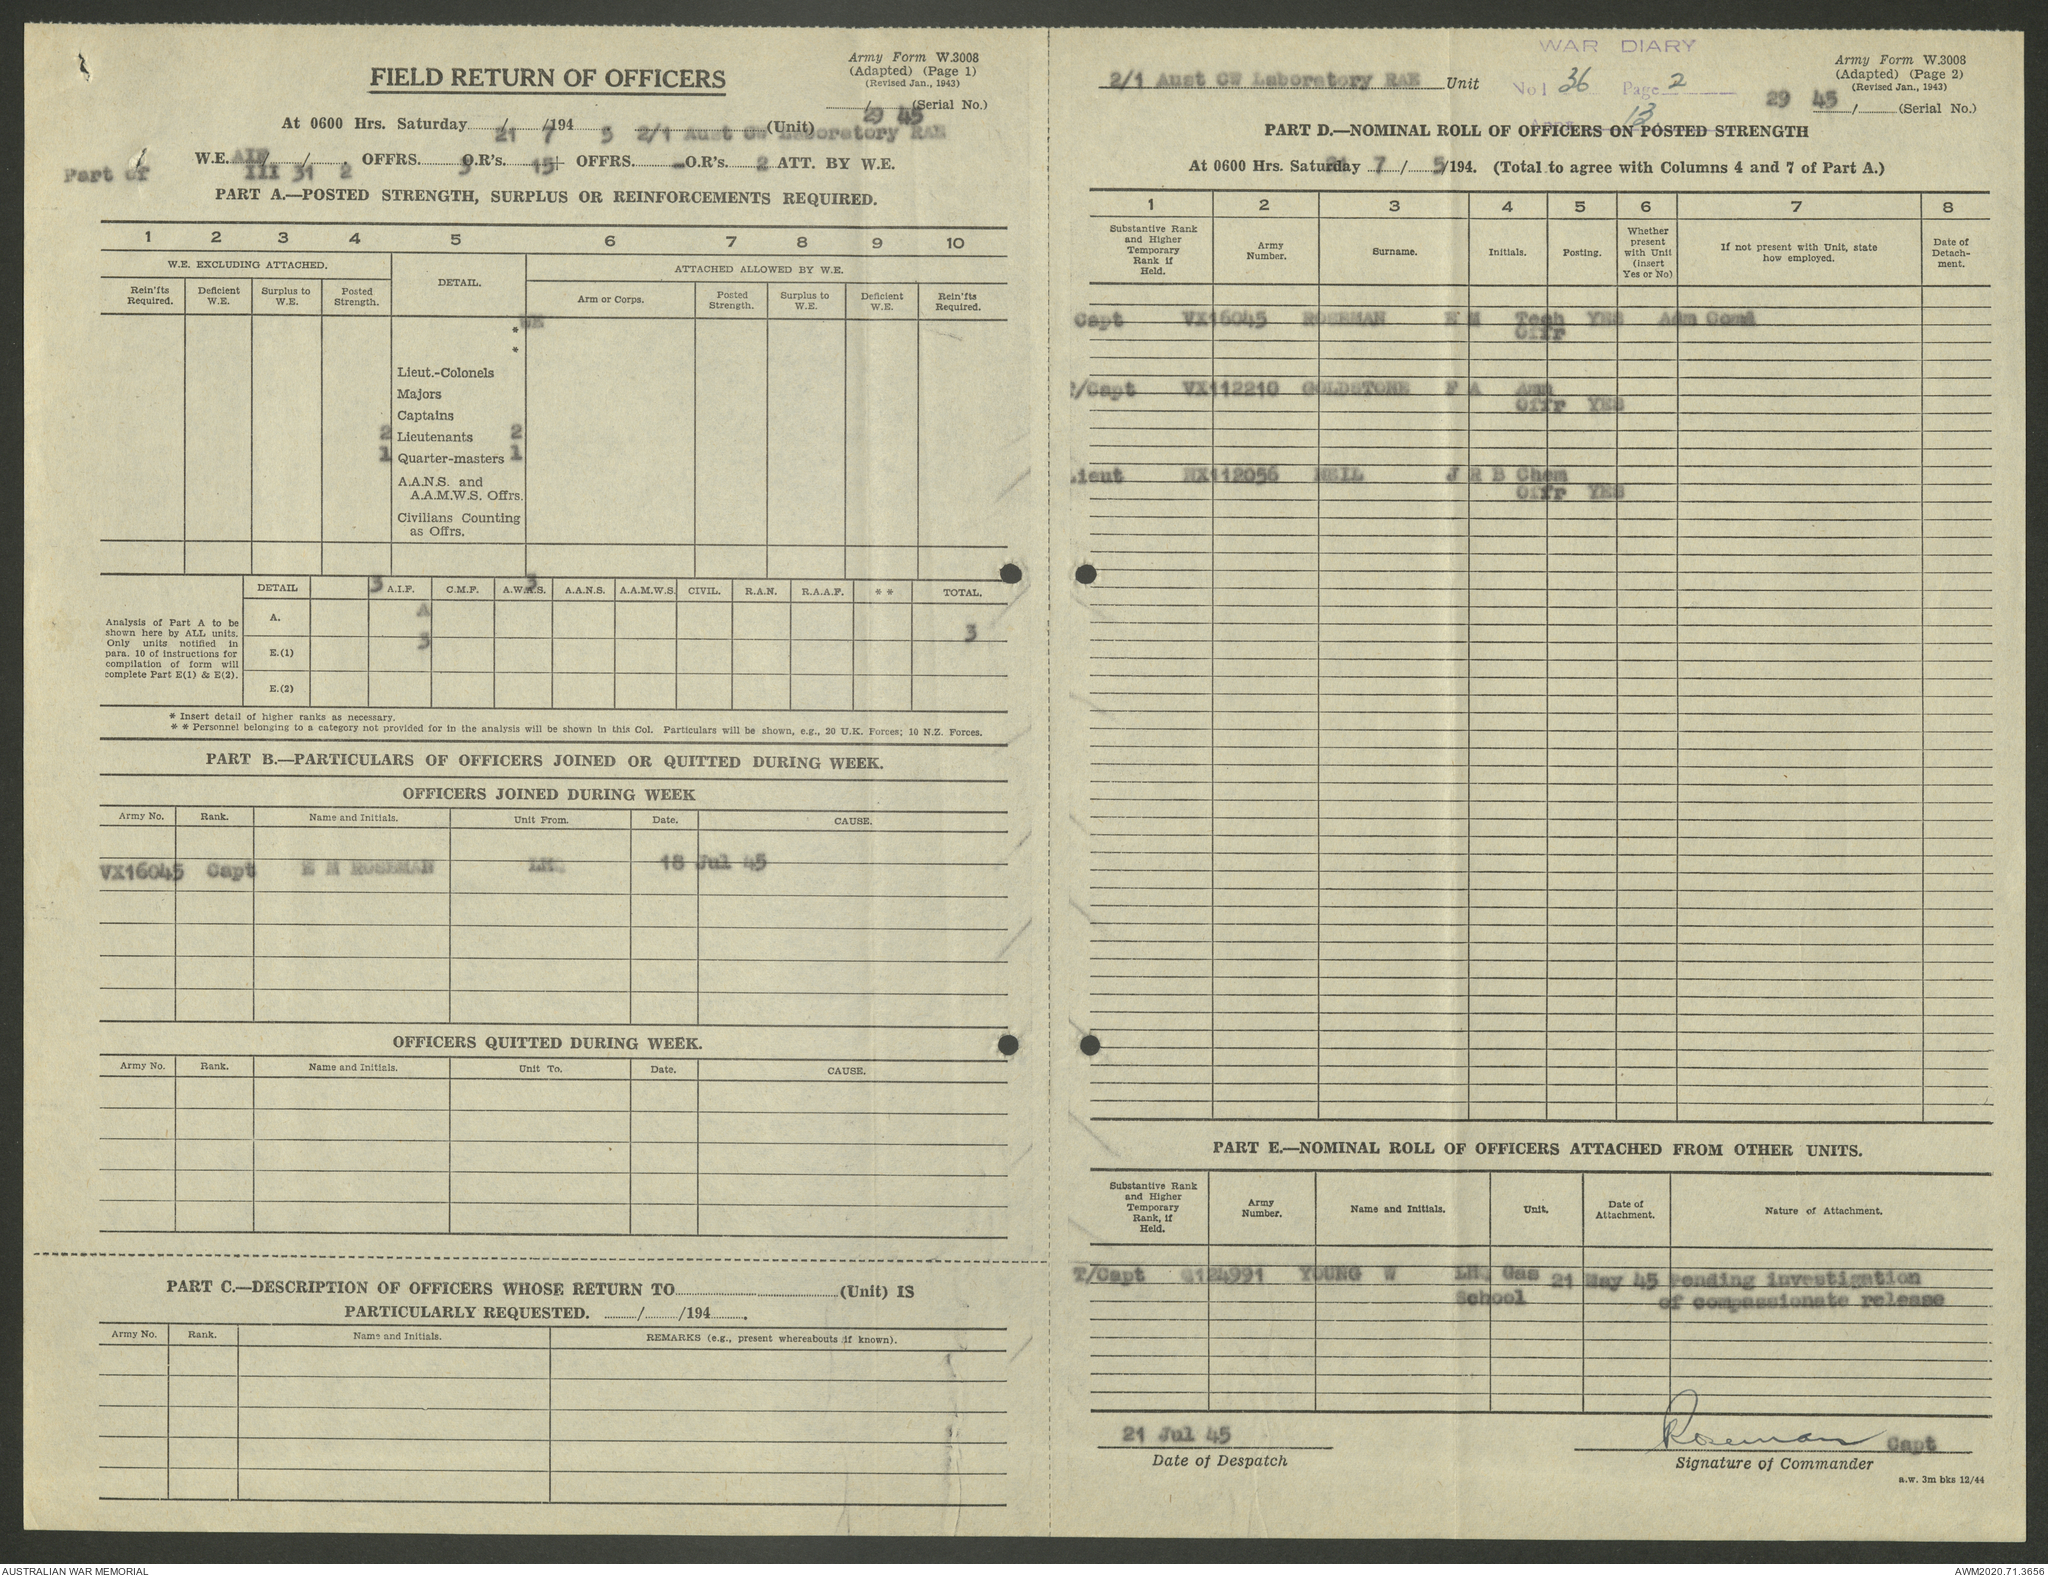 Army Form W.3008
(Adapted) (Page 1)
(Revised Jan., 1943)
FIELD RETURN OF OFFICERS
29 45
/ (Serial No.)
At 0600 Hrs. Saturday 21 / 7 /194 5 2/1 Aust CW Laboratory RAE (Unit)
Part of W.E. AIF III / 31 / 2. OFFRS. 3 O.R's. 15+ OFFRS. - O.R's. 2 ATT. BY W.E.
PART A.—POSTED STRENGTH, SURPLUS OR REINFORCEMENTS REQUIRED.
1 2 3 4 5 6 7 8 9 10
W.E. EXCLUDING ATTACHED. DETAIL. ATTACHED ALLOWED BY W.E.
Rein'fts Required. Deficient W.E. Surplus to W.E. Posted Strength. Arm or Corps. Posted Strength. Surplus to W.E. Deficient W.E. Rein'fts Required.
* WE
*
Lieut.-Colonels
Majors
Captains
2 Lieutenants 2
1 Quarter-masters 1
A.A.N.S. and
A.A.M.W.S. Offrs.
Civilians Counting
as Offrs.
3 3
DETAIL A.I.F. C.M.F. A.W.A.S. A.A.N.S. A.A.M.W.S. CIVIL. R.A.N. R.A.A.F. * * TOTAL.
Analysis of Part A to be
shown here by ALL units.
Only units notified in
para. 10 of instructions for
compilation of form will
complete Part E(1) & E(2).
A. A
3 3
E.(1)
E.(2)
* Insert detail of higher ranks as necessary.
* * Personnel belonging to a category not provided for in the analysis will be shown in this Col. Particulars will be shown, e.g., 20 U.K. Forces; 10 N.Z. Forces.
PART B.—PARTICULARS OF OFFICERS JOINED OR QUITTED DURING WEEK.
OFFICERS JOINED DURING WEEK
Army No. Rank. Name and Initials. Unit From. Date. CAUSE.
VX16045 Capt E M ROSEMAN LHQ 18 Jul 45
OFFICERS QUITTED DURING WEEK.
Army No. Rank. Name and Initials. Unit To. Date. CAUSE.
PART C.—DESCRIPTION OF OFFICERS WHOSE RETURN TO (Unit) IS
PARTICULARLY REQUESTED. / /194 .
Army No. Rank. Name and Initials. REMARKS (e.g., present whereabouts if known).
WAR DIARY
No 1 36 Page 2
Appx 13
2/1 Aust CW Laboratory RAE Unit
Army Form W.3008
(Adapted) (Page 2)
(Revised Jan., 1943)
29 45 / (Serial No.)
PART D.—NOMINAL ROLL OF OFFICERS ON POSTED STRENGTH
At 0600 Hrs. Saturday 21 7 / 5/194. (Total to agree with Columns 4 and 7 of Part A.)
1 2 3 4 5 6 7 8
Substantive Rank and Higher Temporary Rank if Held. Army Number. Surname. Initials. Posting. Whether present with Unit (insert Yes or No) If not present with Unit, state how employed. Date of Detach-ment.
Capt VX16045 ROSEMAN E M Tech YES Adm Comd
Offr
T/Capt VX112210 GOLDSTONE F A Amn
Offr YES
Lieut NX112056 NEIL J R B Chem
Offr YES
PART E.—NOMINAL ROLL OF OFFICERS ATTACHED FROM OTHER UNITS.
Substantive Rank and Higher Temporary Rank, if Held. Army Number. Name and Initials. Unit. Date of Attachment. Nature of Attachment.
T/Capt Q124991 YOUNG W LHQ Gas 21 May 45 Pending investigation
School of compassionate release
21 Jul 45
Date of Despatch
Roseman Capt
Signature of Commander
a.w. 3m bks 12/44
AUSTRALIAN WAR MEMORIAL
AWM2020.71.3656